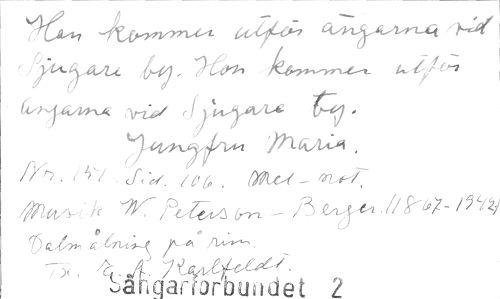 Hon kommer utför ängarna vid
Sjugare by. Hon kommer utför
ängarna vid Sjugare by.
Jungfru Maria.
Nr. 151. Sid. 106. Mel-not.
Musik W. Peterson-Berger. (1867-1942)
Dalmålning på rim.
Tx. E. A. Karlfeldt.
Sångarförbundet 2